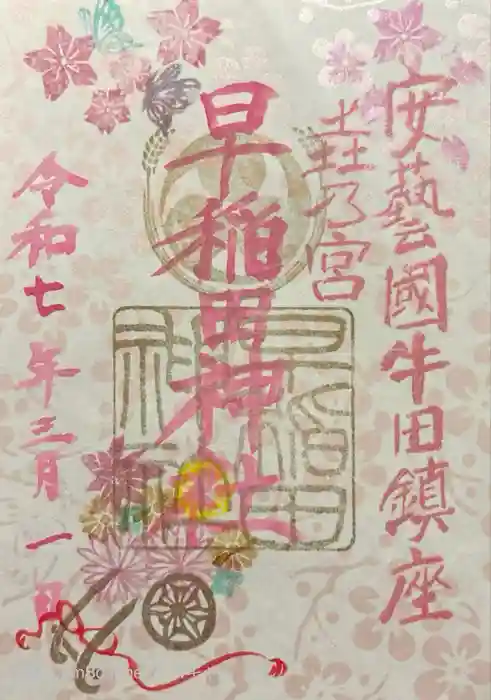 安藝國牛田鎮座
乃宮
早稲田神社
早稲田
神社
令和七年三月一日